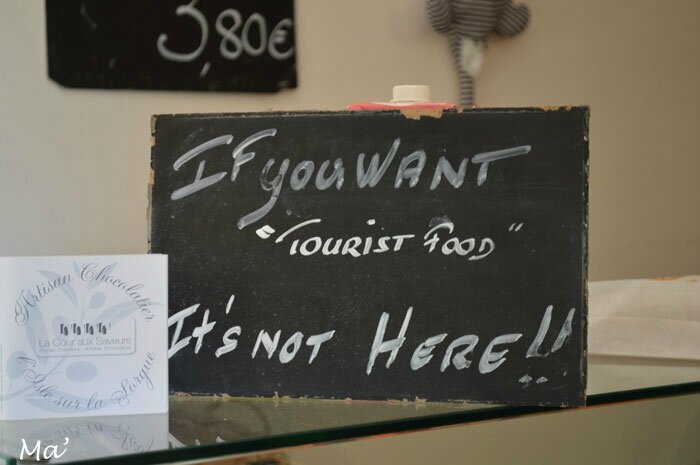 3,80€
If you WANT
"Tourist Food"
It's NOT HERE!!
Artisan Chocolatier
La Cour aux Saveurs
l'Isle sur la Sorgue
Ma'